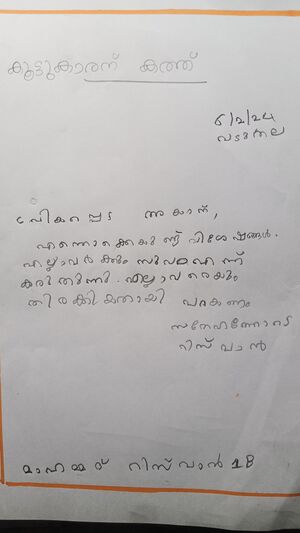 കൂട്ടുകാരന് കത്ത്
6/2/24
വടുതല
പ്രിയപ്പെട്ട
എന്തൊക്കെയുണ്ട് വിശേഷങ്ങൾ.
എല്ലാവർക്കും സുഖമാണെന്ന്
കരുതുന്നു. എല്ലാവരെയും
തിരക്കിയതായി പറയണം
സ്നേഹത്തോടെ
റിസ് വാൻ
റിസ് വാൻ 1B